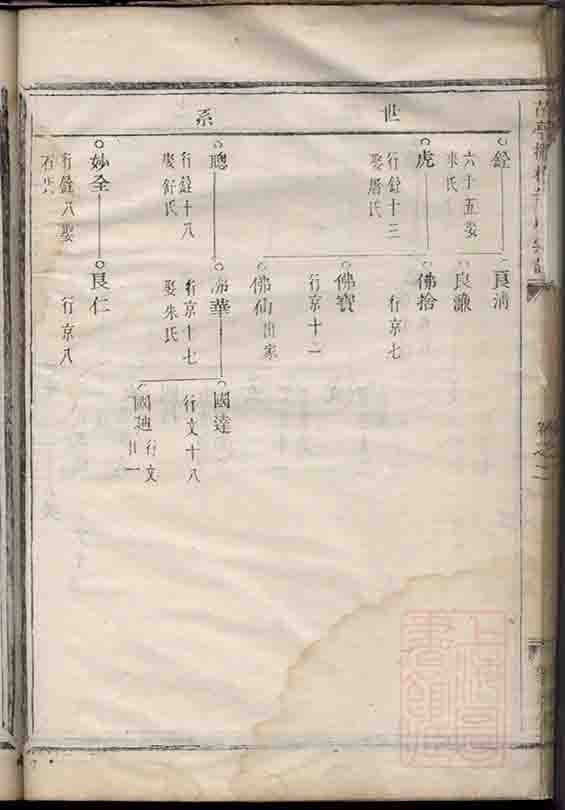 世系
銓
六十五娶
朱氏
良濂
虎
行銓十三
娶屠氏
佛捨
行京七
佛寳
行京十二
佛仙出家
聰
行銓十八
娶舒氏
華
行京十七
娶朱氏
國達
行文十八
行文
廿一
妙全
行銓八娶
良仁
行京八
上海圖
書館藏